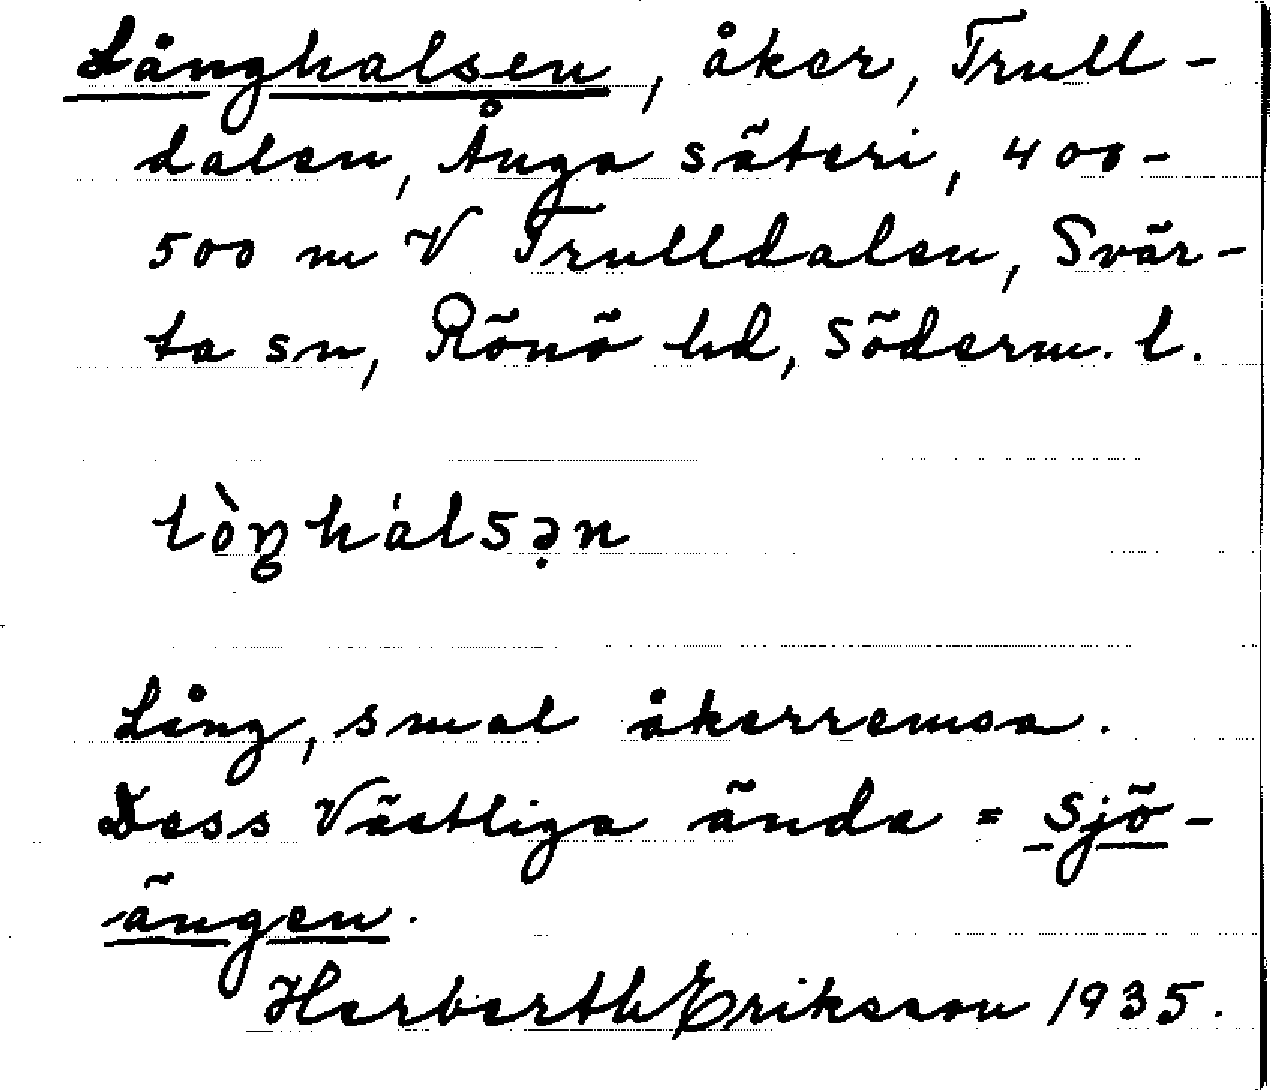 Långhalsen, åker, Trull-
dalen, Ånga säteri, 400-
500 m V Trulldalen, Svär-
ta sn, Rönö hd, Söderm. l.
lòŋhálsə̣n
Lång, smal åkerremsa.
Dess Västliga ända = Sjö-
ängen.
Herberth Eriksson 1935.